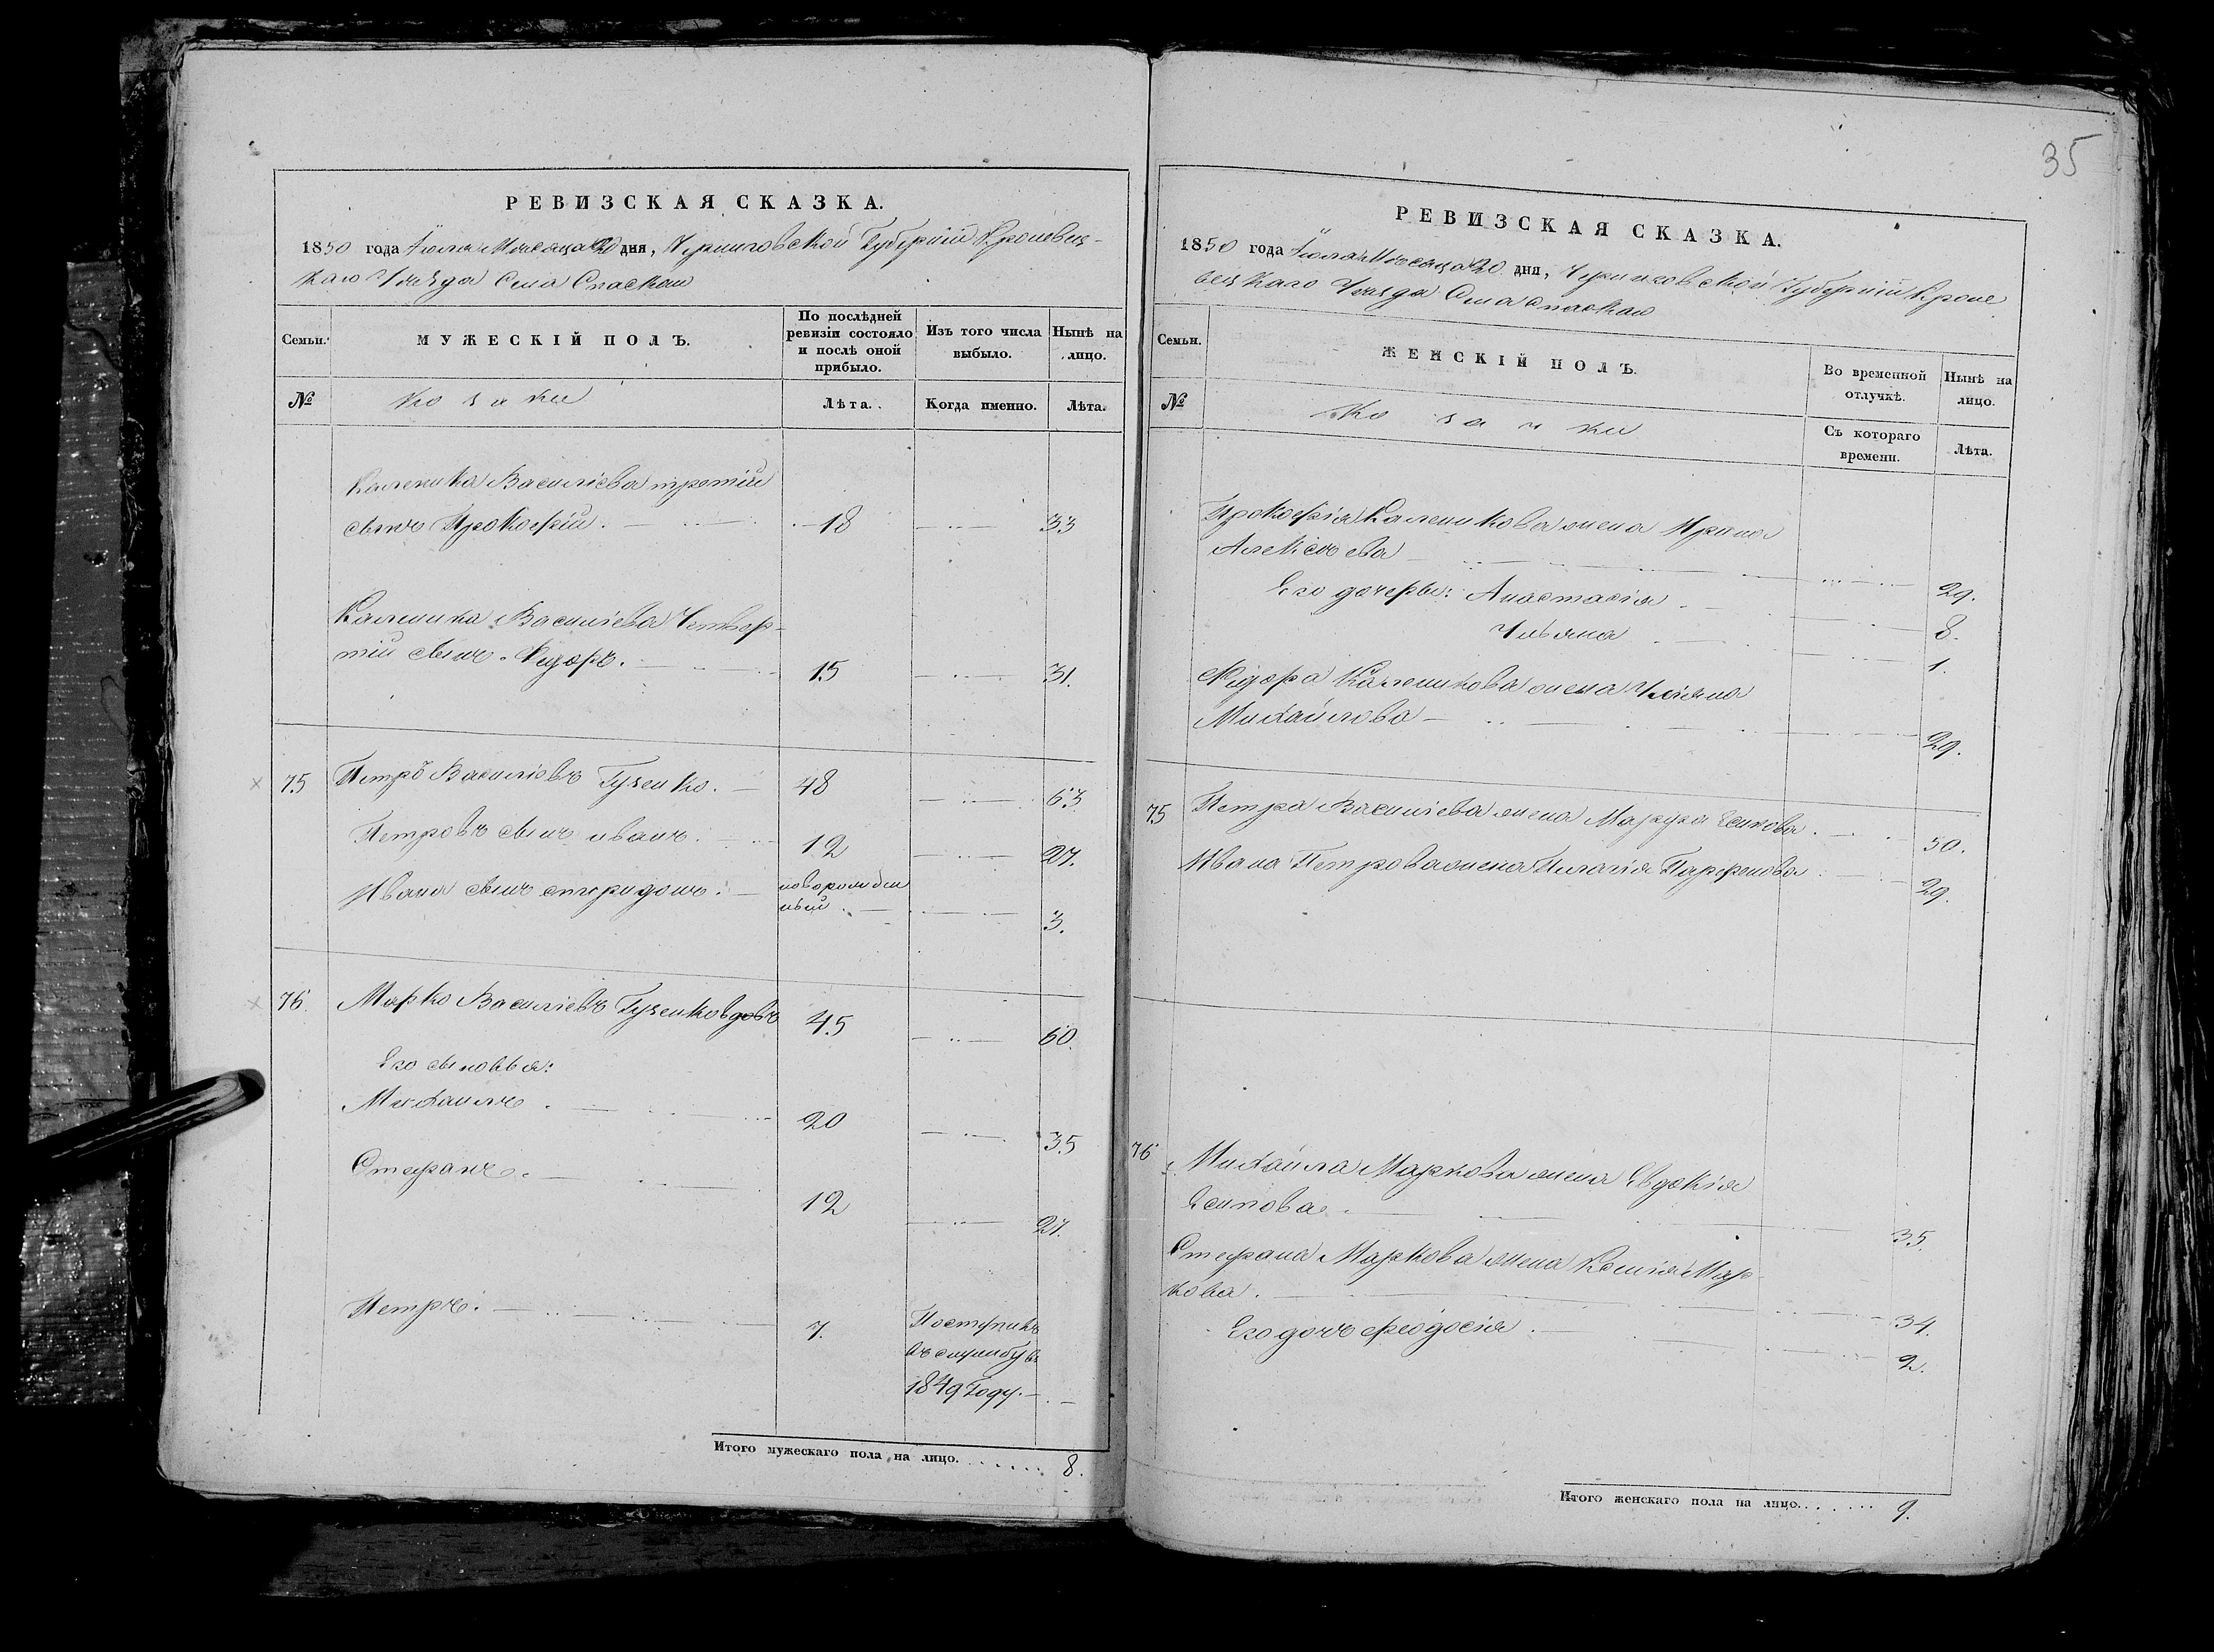 35
РЕВИЗСКАЯ СКАЗКА.
1850 года Іюля Мѣсяца 20 дня, Черниговской Губерніи Кролевец-
каго Уѣзда Села Спаскаго
Семьи.
МУЖЕСКІЙ ПОЛЪ.
По послѣдней ревизіи состояло и послѣ оной прибыло.
Изъ того числа выбыло.
Нынѣ на лицо.
№
козаки
Лѣта.
Когда именно.
Лѣта.
Каленика Василіева третій
сынъ Прокофій. 18 33
Каленика Василіева Четвер-
тій сынъ Федоръ. 15 31.
75 Петръ Василіевъ Гузенко. 48 63
Петровъ сынъ иванъ. 12 27.
Ивана сынъ спиридонъ. новорожден
ный 3.
76. Марко Василіевъ Гузенко вдовъ 45 60.
Его сыновья:
Михаилъ. 20 35
Стефанъ. 12 27.
Петръ. 7. Поступилъ
въ службу въ
1849 Году.
Итого мужескаго пола на лицо. 8.
РЕВИЗСКАЯ СКАЗКА.
1850 года Іюля Мѣсяца 20 дня, Черниговской Губерніи Кроле
вецкаго Уѣзда Села Спаскаго
Семьи.
ЖЕНСКІЙ ПОЛЪ.
Во временной отлучкѣ.
Нынѣ на лицо.
№
козачки
Съ котораго времени.
Лѣта.
Прокофія Каленикова жена Ирина
Алексѣева 29.
Его дочеры: Анастасія 8.
Ульяна 1.
Федора Каленикова жена Уліяна
Михайлова 29.
75 Петра Василіева жена Марфа Есипова. 50.
Ивана Петрова жена Пилагія Парфенова 29.
76 Михайла Маркова жена Евдокія
Есипова. 35.
Стефана Маркова жена Ксенія Мар-
кова. 34.
Его дочь Феодосія. 2.
Итого женскаго пола на лицо. 9.